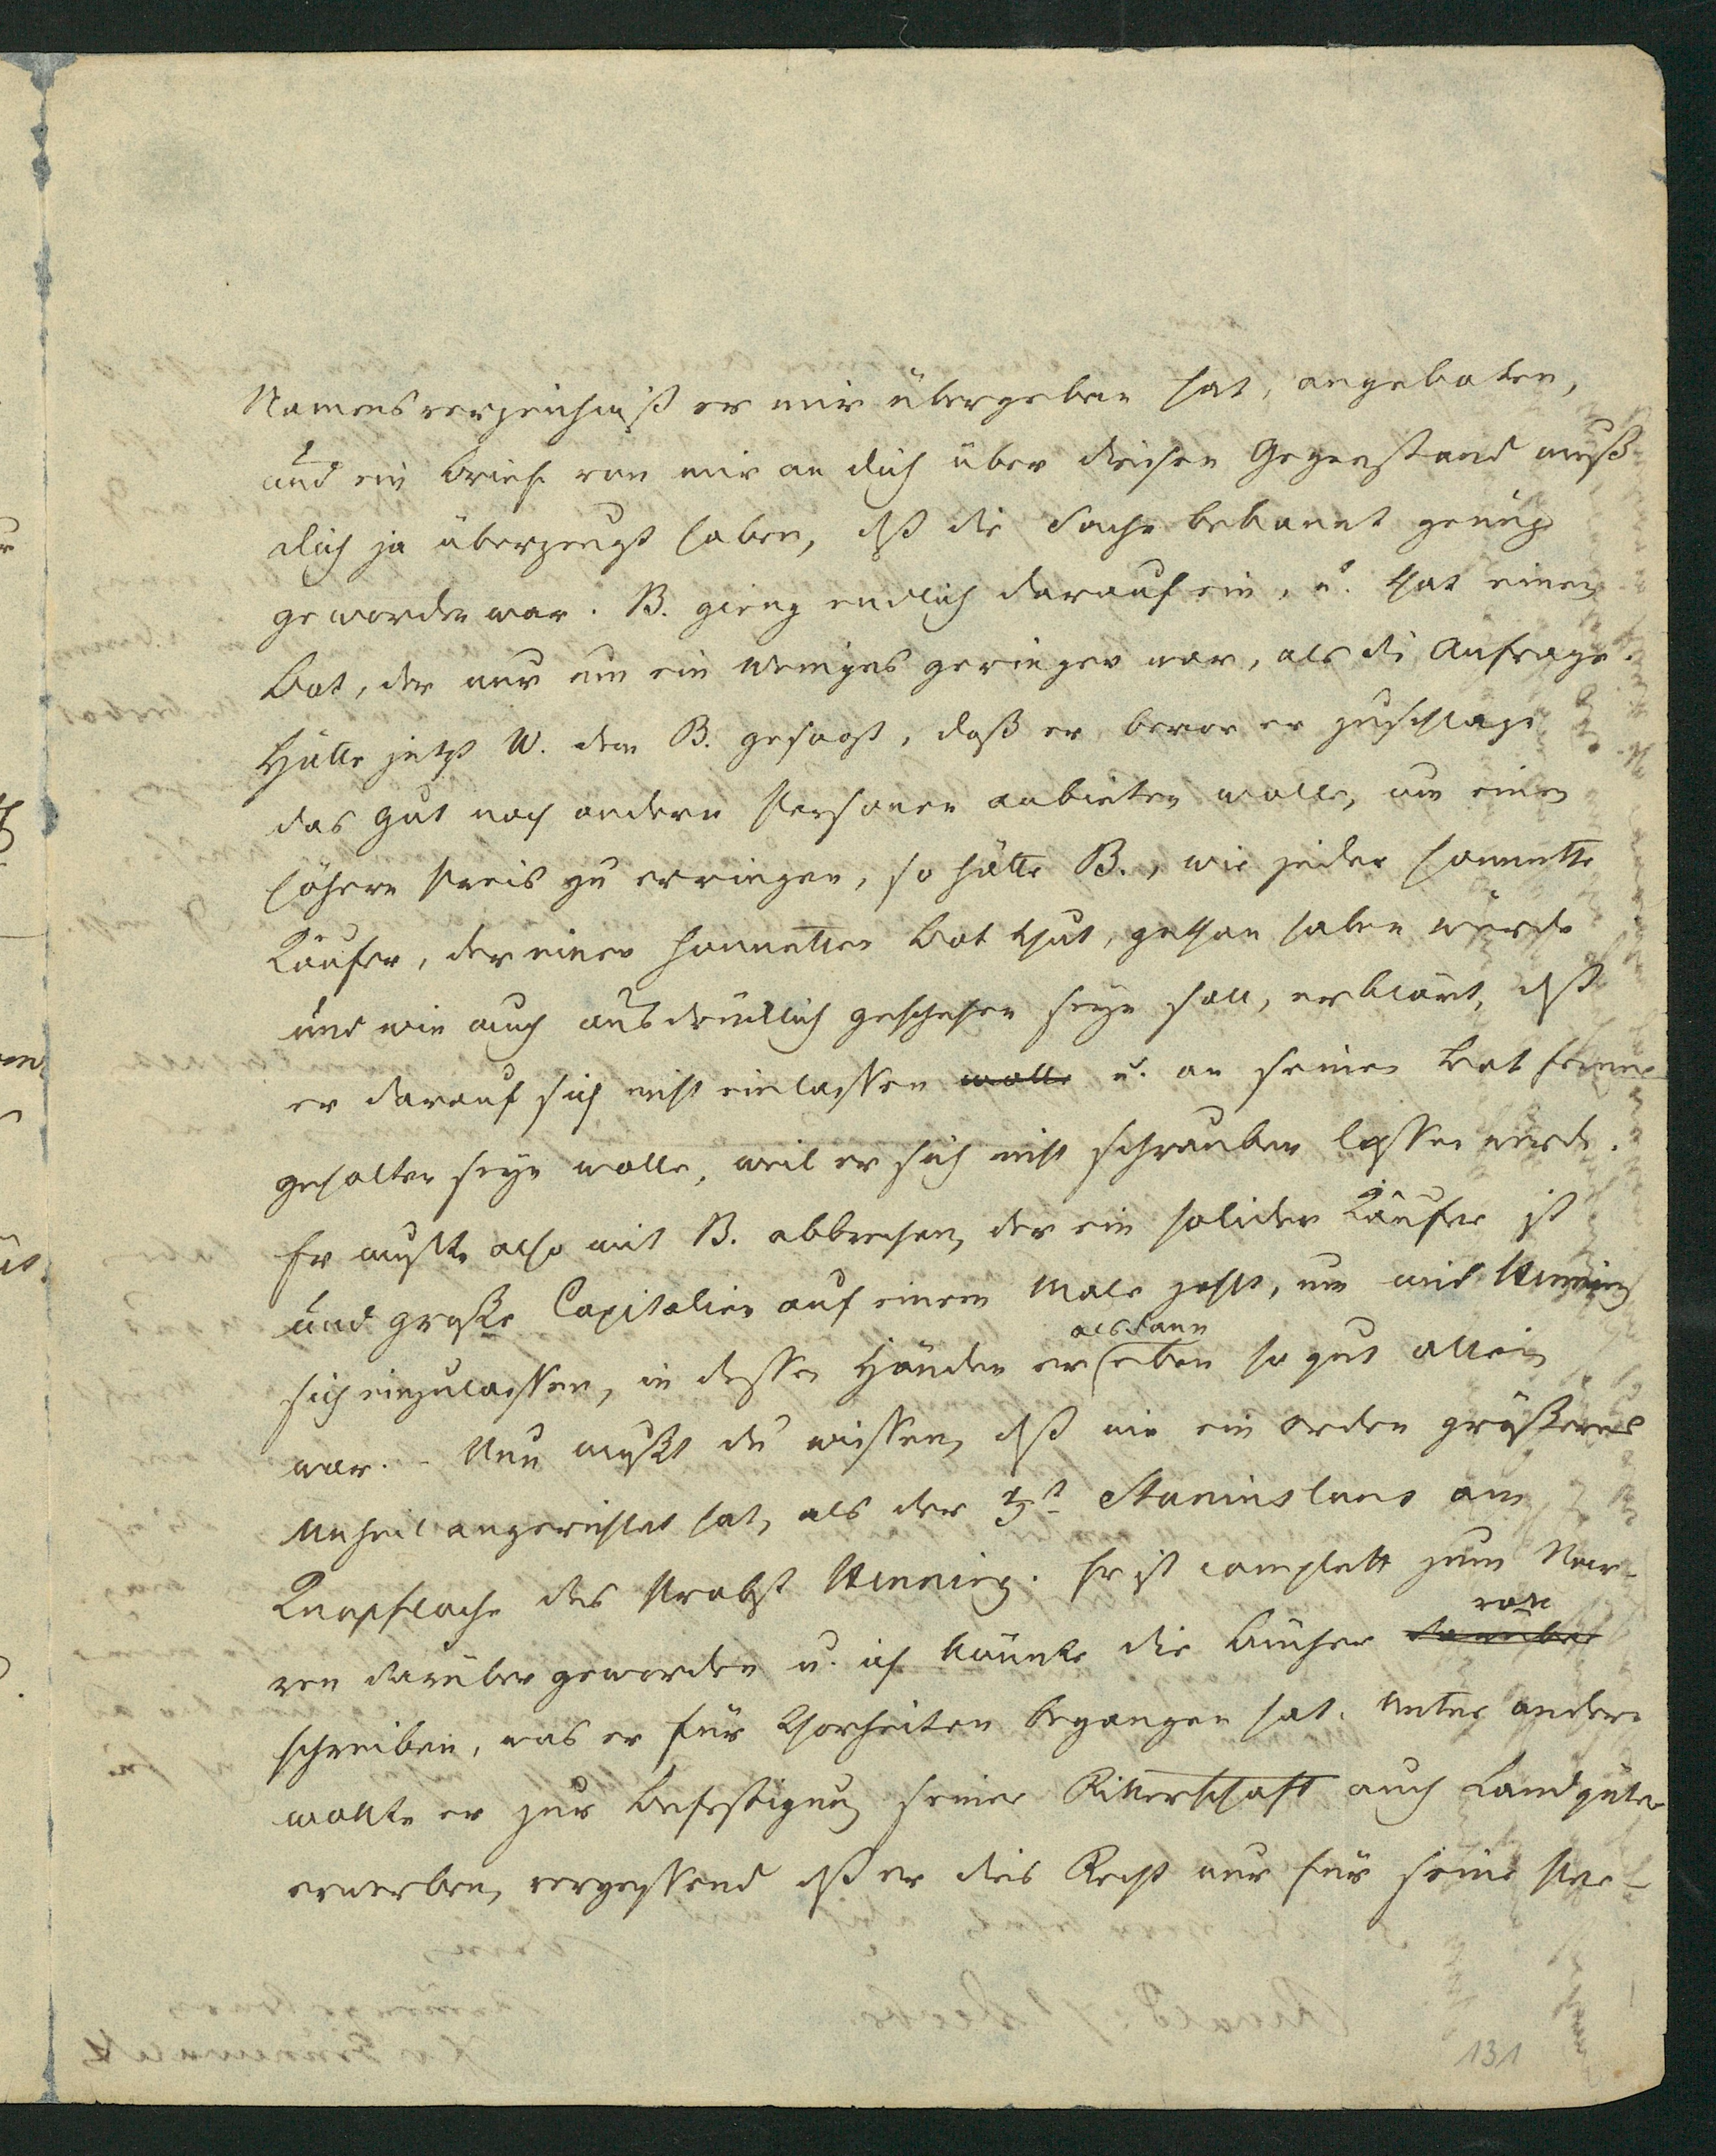 Namensverzeichniß er mir übergeben hat, angeboten,
und ein Brief von mir an dich über diesen Gegenstand muß
dich ja überzeugt haben, dß die Sache bekannt genug
geworden war. B. gieng endlich darauf ein, u. that einen
Bot, der nur um ein Weniges geringer war, als die Anfrage.
Hätte jetzt W. dem B. gesagt, daß er bevor er zuschlage
das Gut noch andern Personen anbieten wolle, um einen
höhern Preis zu erringen, so hätte B., wie jeder honnette
Käufer, der einen honnetten Bot thut, gethan haben würde
und wie auch ausdrücklich geschehen seyn soll, erklärt, dß
er darauf sich nicht einlassen wolle u. an seinen Bot ferner
gehalten seyn wolle, weil er sich nicht schrauben lassen werde.
Er mußte also mit B. abbrechen, der ein solider Käufer ist
und große Capitalien auf einem Male zahlt, um mit Henning
sich einzulassen, in dessen Händen er alsdann eben so gut allein
war. - Nun mußt du wissen, dß nie ein Orden größeres
Unheil angerichtet hat, als der St Stanislaus am
Knopfloche des Probst Henning. Er ist complett zum Nar-
ren darüber geworden u. ich könnte dir Bücher voll
schreiben, was er für Thorheiten begangen hat. Unter andern
wollte er zur Befestigung seiner Ritterschaft auch Landgüter
erwerben, vergessend dß er dies Recht nur für seine Per-
131